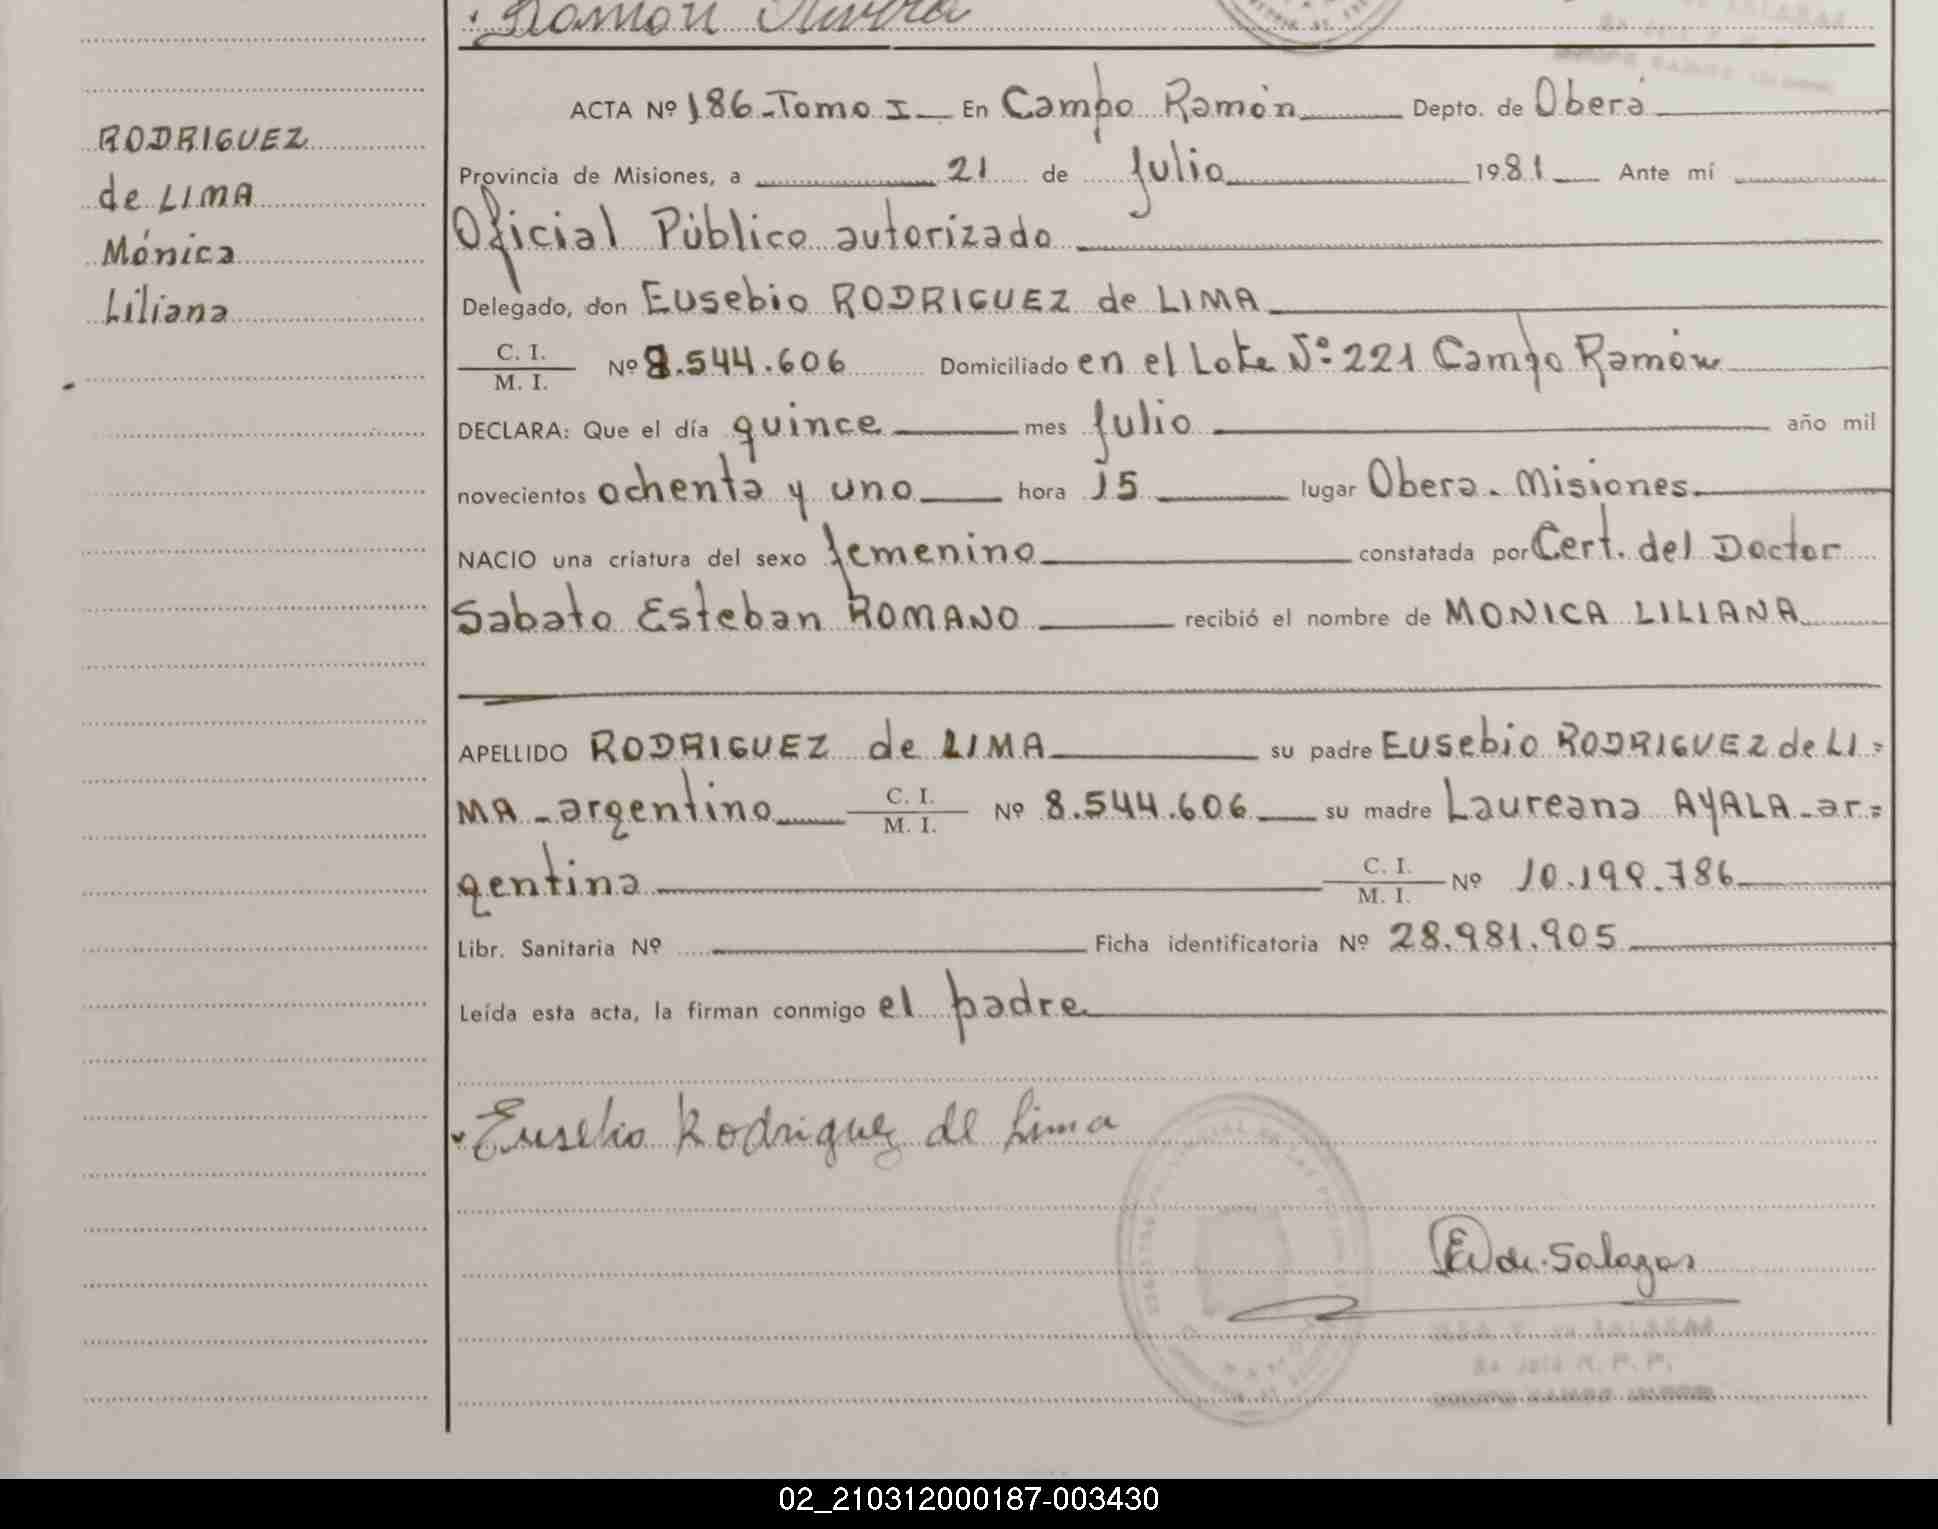 Ramón
RODRIGUEZ
de LIMA
Mónica
Liliana
ACTA Nº 186-Tomo I En Campo Ramón Depto. de Oberá
Provincia de Misiones, a 21 de Julio 1981 Ante mí
Oficial Público autorizado
Delegado, don Eusebio RODRIGUEZ de LIMA
C. I.
M. I. Nº 8.544.606 Domiciliado en el Lote Nº 221 Campo Ramón
DECLARA: Que el día quince mes Julio año mil
novecientos ochenta y uno hora 15 lugar Obera. Misiones.
NACIO una criatura del sexo femenino constatada por Cert. del Doctor
Sabato Esteban ROMANO recibió el nombre de MONICA LILIANA
APELLIDO RODRIGUEZ de LIMA su padre Eusebio RODRIGUEZ de LI=
MA - argentino C. I. M. I. Nº 8.544.606 su madre Laureana AYALA - ar=
gentina C. I. M. I. Nº 10.199.786
Libr. Sanitaria Nº Ficha identificatoria Nº 28.981.905
Leída esta acta, la firman conmigo el padre
Eusebio Rodriguez de Lima
de Salazar
de SALAZAR
R. P. P.
02_210312000187-003430